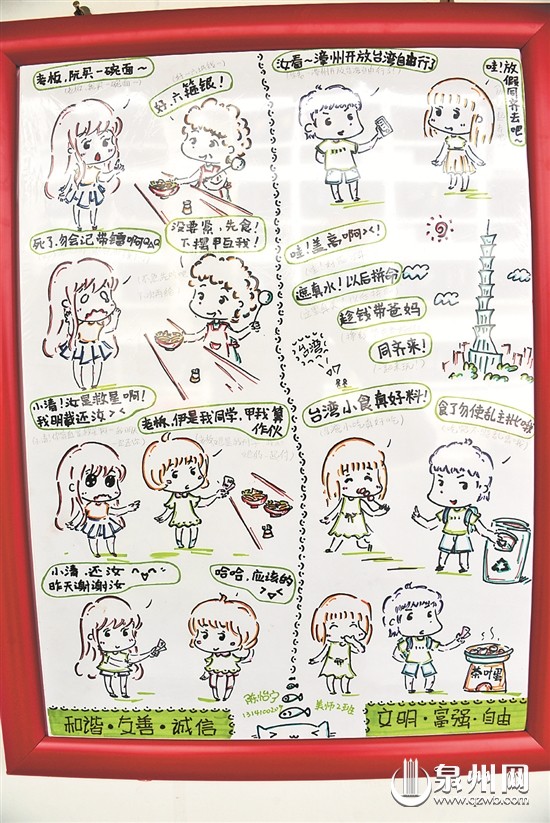 老板,阮买一碗面~
好,六箍银!
死了,勿会记带镭啊
没要紧,先食!
下摆甲互我!
小清!汝是救星啊!
我明载还汝><
老板,伊是我同学,甲我算
作伙
小清,还汝
昨天谢谢汝
哈哈,应该的
和谐·友善·诚信
汝看~漳州开放台湾自由行了
哇!放
假同齐去吧~
哇!盖高啊><!
遮真水!以后拼命
趁钱带爸妈
同齐来!
台湾
台湾小食真好料!
食了勿使乱主扑
茶叶蛋
文明·富强·自由
陈怡宁
美师2班
泉州网
www.qzwb.com